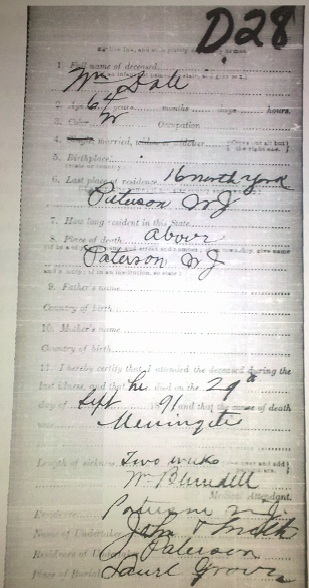 D.28
1. Full name of deceased
Wm Dale
2. Age 64 years months days hours.
3. Color W Occupation
4. married,
5. Birthplace
6. Last place of residence 16 north York
Paterson NJ
7. How long resident in this State
8. Place of death above
Paterson NJ
9. Father's name
Country of birth
10. Mother's name
Country of birth
11. I hereby certify that I attended the deceased during the
last illness, and that he died on the 29th
day of Sept 91 and that the cause of death
was
Meningitis
Length of sickness Two weeks
W. Blundell
Medical Attendant.
Residence Paterson N.J.
Name of Undertaker John
Residence of Undertaker Paterson
Place of Burial Laurel Grove